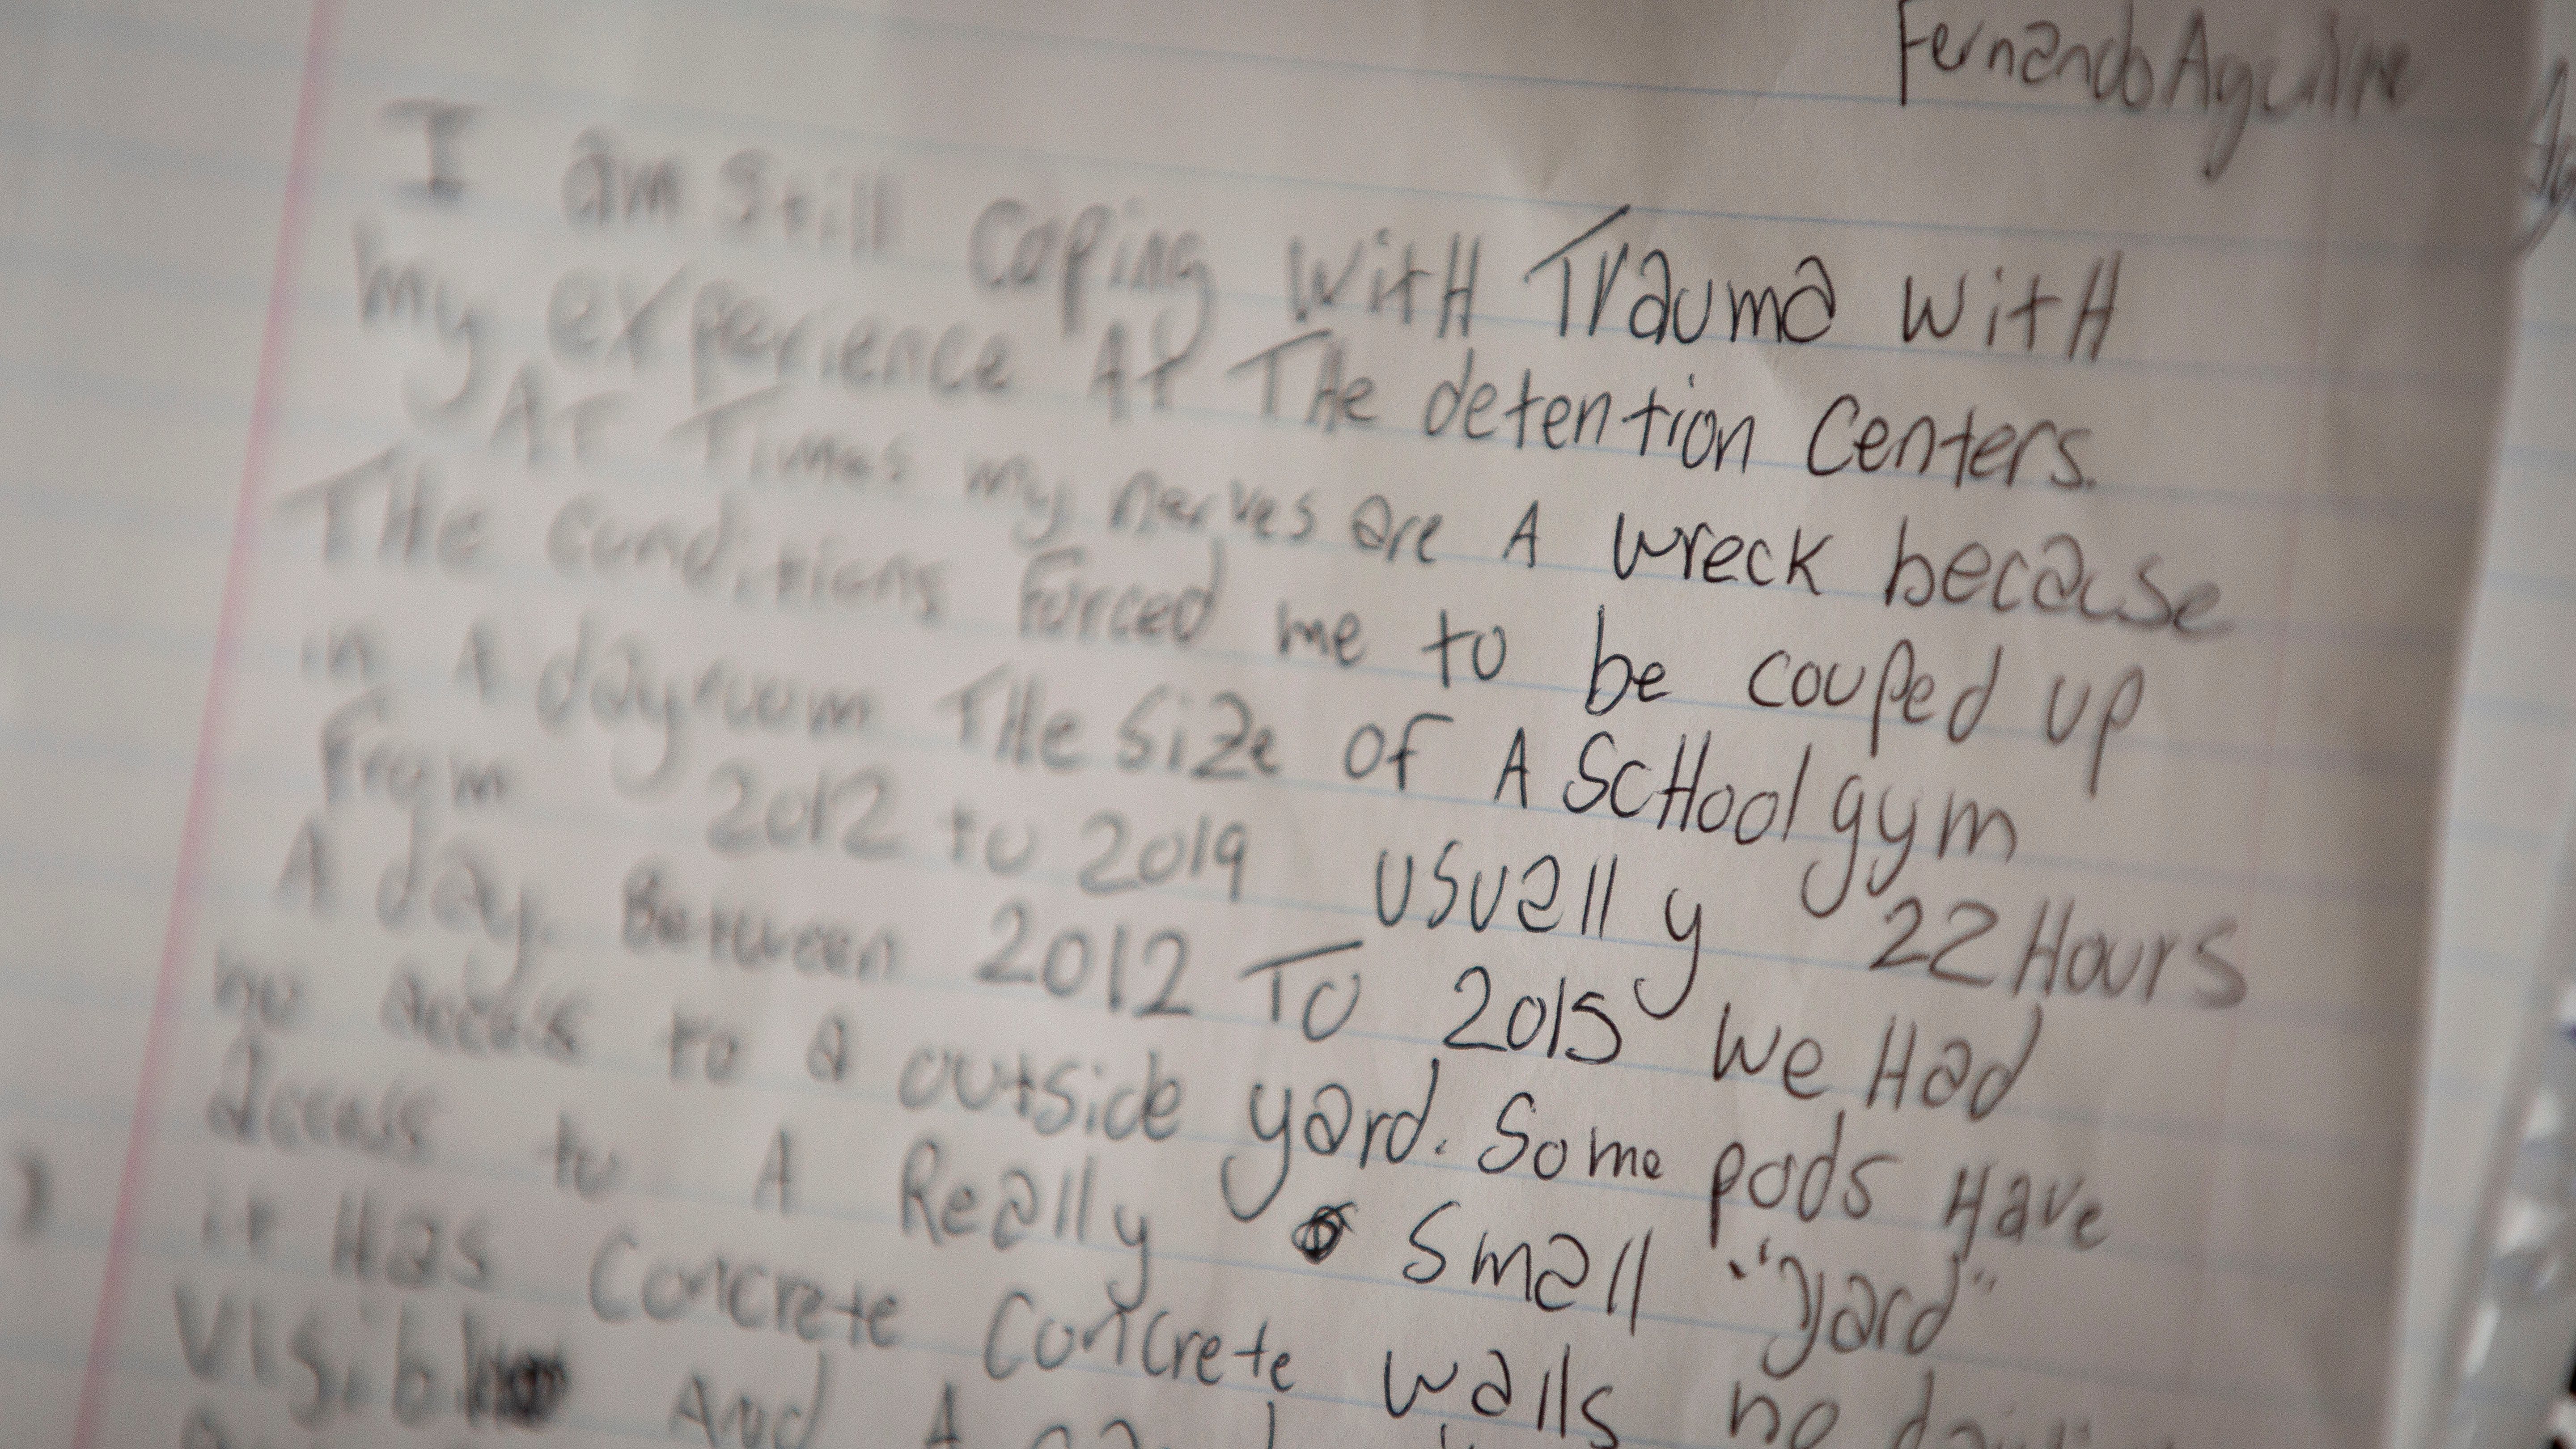 Fernando Aguirre
I am still coping WitH Trauma WitH
my experience At THe detention Centers.
AT Times my nerves are A wreck because
THe conditions Forced me to be couped up
in A dayroom THe Size of A ScHool gym
From 2012 to 2019 usually 22 Hours
A day. Between 2012 To 2015 We Had
no access to a outside yard. Some pods Have
access to A Really Small "yard"
it Has Concrete Concrete walls no
And A